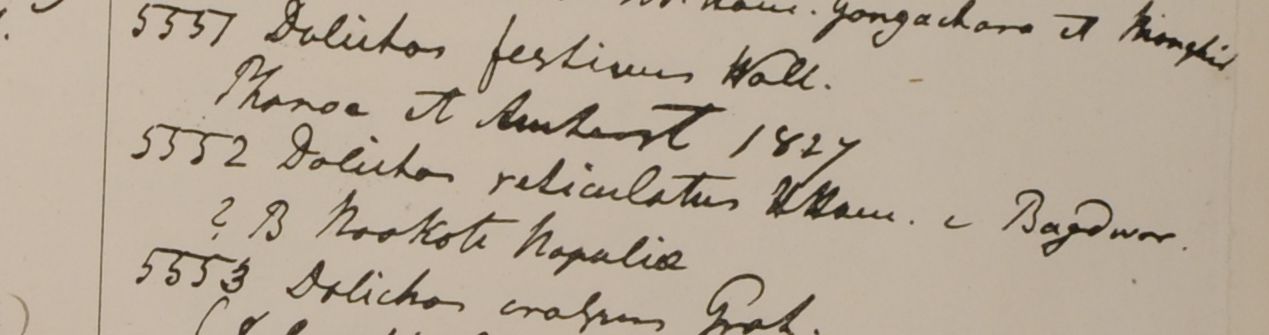 Ham. Gongachora et Monghir
5551 Dolichos festivus Wall.
Phanoe et Amherst 1827
5552 Dolichos reticulatus HHam. e Bagdwar.
? B Noakote Napaliæ
5553 Dolichos Grah.